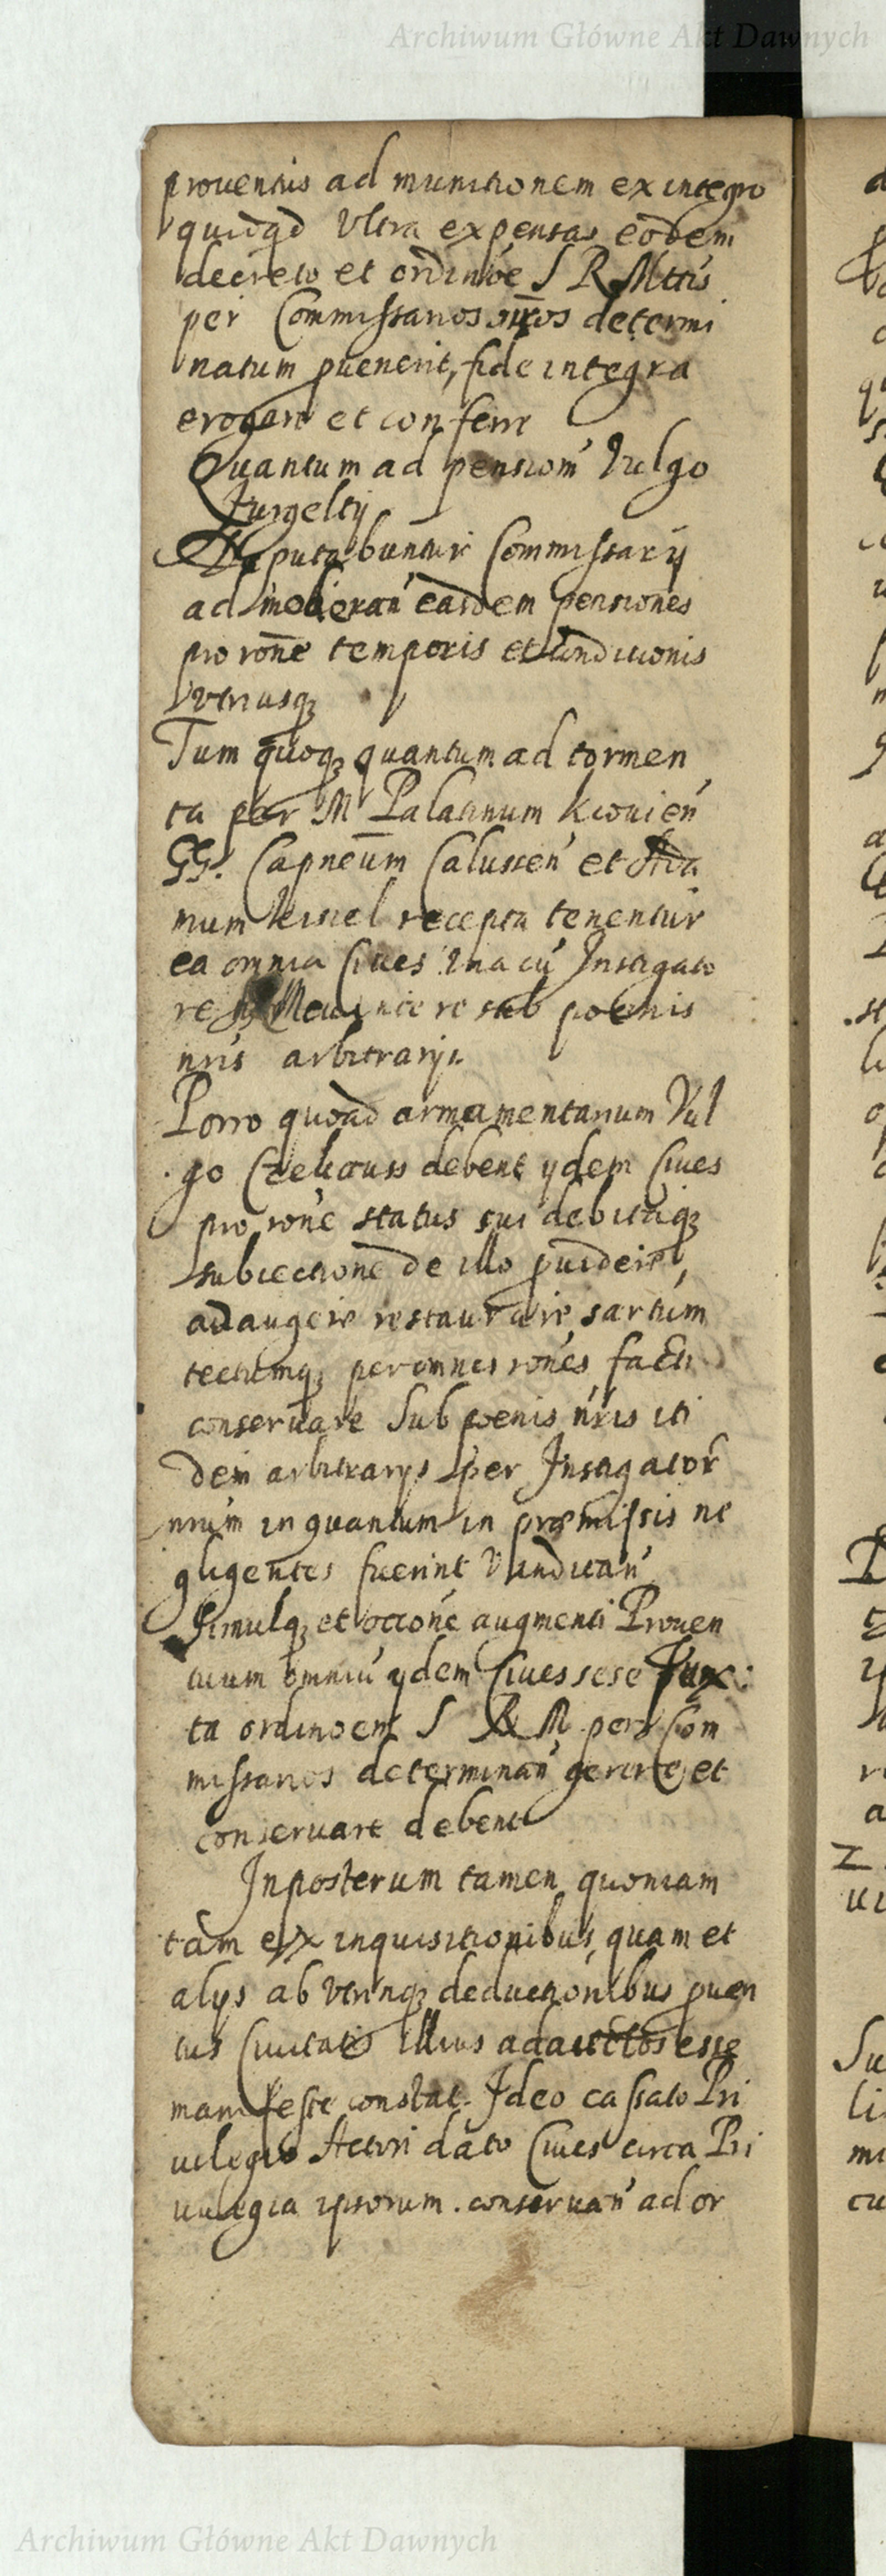 Archiwum Główne Akt Dawnych
prouentus ad munitionem ex integro
quidqd Vltra expensas eodem
decreto et ordinōe S R Mttis
per Commissarios nr̄os determi
natum puenerit, fide integra
erogare et conferre
Quantum ad pension̄ Vulgo
Jurgeltij
Deputabuntur Commissarij
ad moderan̄ easdem pensiones
pro rōne temporis et conditionis
vtriusq;
Tum quoq; quantum ad tormen
ta per M Palatinum Kiouien̄
GG. Capneum Calussen̄ et Ada
mum kisiel recepta tenentur
ea omnia Ciues Vna cū Instigato
re sub poenis
nris arbitrarijs
Porro quoad armamentarium Vul
go Czekauss debent ijdem Ciues
pro rōne status sui debitaq;
subiectione de illo puidere,
adaugere restaurare, sartum
tectumq; per omnes rōnes facti
conseruare Sub poenis nr̄is iti
dem arbitrarijs per Instigator̄
nrum in quantum in praemissis ne
gligentes fuerint Vindican̄
Simulq; et occōne augmenti Prouen
tuum omniū ijdem Ciues sese Jux:
ta ordinoem S R M per Com
missarios determinan̄ gerere et
conseruare debent
Inposterum tamen quoniam
tam ex inquisitionibus, quam et
alijs ab vtrinq; deductionibus puen
tus Ciuitatis illius adauctos esse
manifeste constat. Ideo cassato Pri
uilegio Actori dato Ciues circa Pri
uilegia ipsorum. conseruan̄ ad or
Archiwum Główne Akt Dawnych